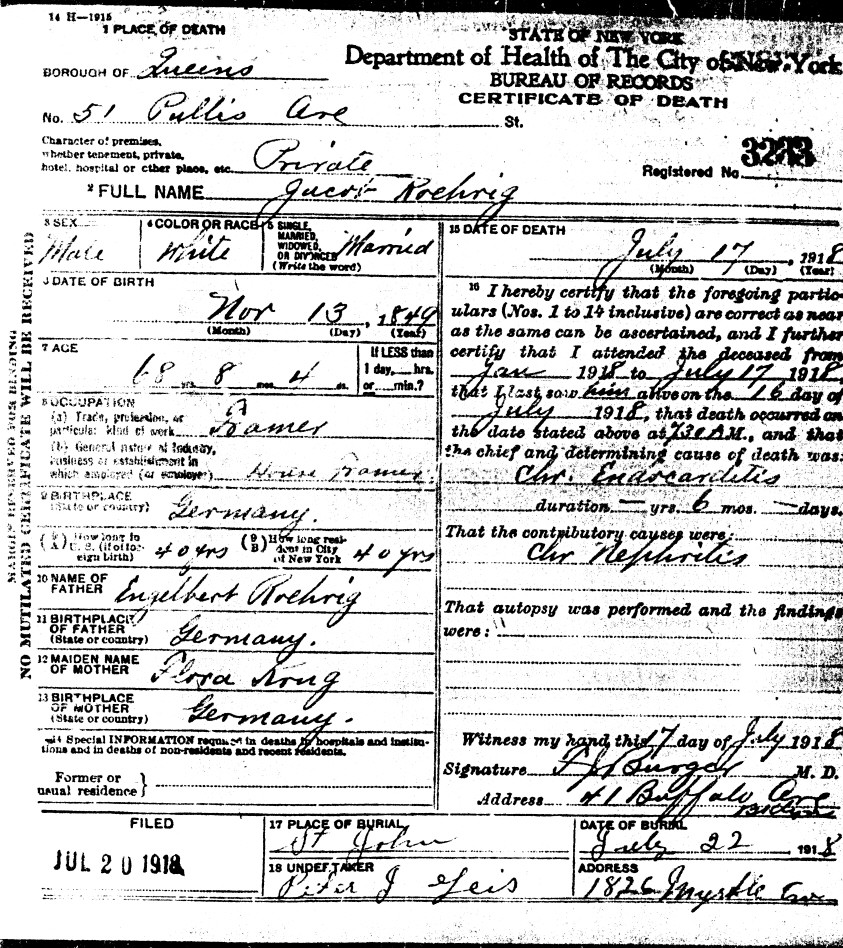 14 H—1915
1 PLACE OF DEATH
STATE OF NEW YORK
Department of Health of The City of New York
BUREAU OF RECORDS
CERTIFICATE OF DEATH
BOROUGH OF Queens
No. 51 Pullis Ave St.
Character of premises,
whether tenement, private,
hotel, hospital or other place, etc. Private
Registered No. 3233
2 FULL NAME Jacob Roehrig
3 SEX Male
4 COLOR OR RACE White
5 SINGLE, MARRIED, WIDOWED, OR DIVORCED (Write the word) Married
DATE OF BIRTH
Nov 13, 1849
(Month) (Day) (Year)
7 AGE
68 yrs. 8 mos. 4 ds.
If LESS than
1 day, hrs.
or min.?
8 OCCUPATION
(a) Trade, profession, or
particular kind of work Framer
(b) General nature of Industry,
business or establishment in
which employed (or employer) House Framer
9 BIRTHPLACE
(State or country) Germany.
How long in
U. S. (if of foreign birth) 40 yrs
(9 B) How long resident in City
of New York 40 yrs
10 NAME OF
FATHER Engelbert Roehrig
11 BIRTHPLACE
OF FATHER
(State or country) Germany.
12 MAIDEN NAME
OF MOTHER Flora Krug
13 BIRTHPLACE
OF MOTHER
(State or country) Germany.
14 Special INFORMATION required in deaths in hospitals and institutions and in deaths of non-residents and recent residents.
Former or
usual residence
15 DATE OF DEATH
July 17, 1918
(Month) (Day) (Year)
16 I hereby certify that the foregoing particulars
(Nos. 1 to 14 inclusive) are correct as near
as the same can be ascertained, and I further
certify that I attended the deceased from
Jan 1918 to July 17 1918,
that I last saw him alive on the 16 day of
July 1918, that death occurred on
the date stated above at 7.30 A.M., and that
the chief and determining cause of death was:
Chr. Endocarditis
duration — yrs. 6 mos. — days.
That the contributory causes were:
Chr Nephritis
That autopsy was performed and the findings
were:
Witness my hand this 17 day of July 1918
Signature F J Burger M. D.
Address 41 Buffalo Ave
FILED
JUL 20 1918
17 PLACE OF BURIAL
St John
DATE OF BURIAL
July 22 1918
18 UNDERTAKER
Peter J Geis
ADDRESS
1826 Myrtle Ave
MARGIN RESERVED FOR BINDING
NO MUTILATED CERTIFICATE WILL BE RECEIVED